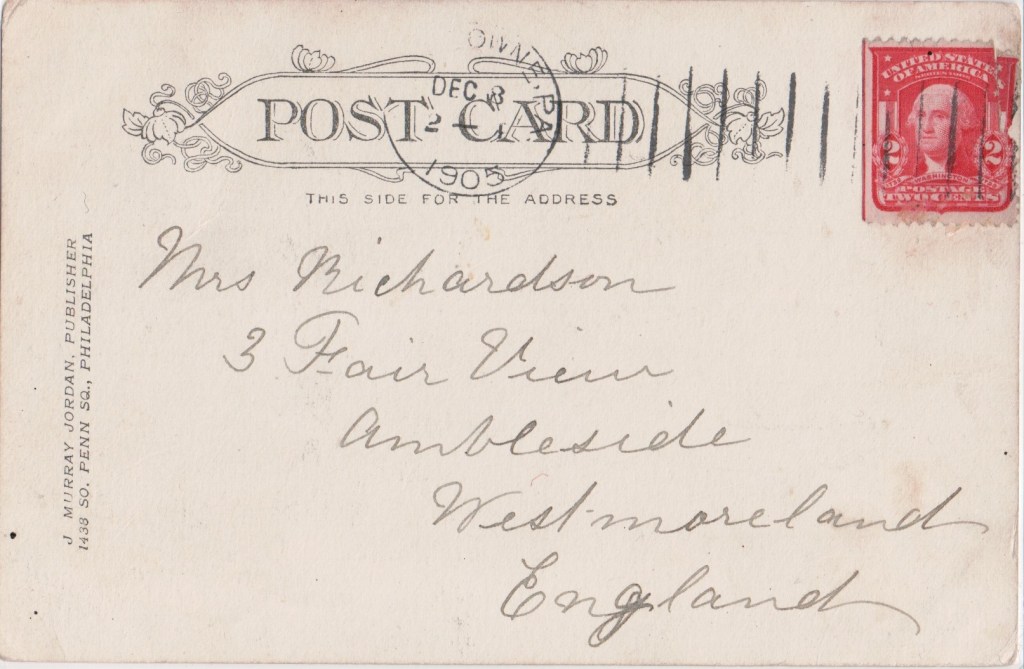 POST CARD
DEC 8
2 -
1905
THIS SIDE FOR THE ADDRESS
UNITED STATES
OF AMERICA
2 2
WASHINGTON
POSTAGE
TWO CENTS
Mrs Richardson
3 Fair View
Ambleside
Westmoreland
England
J. MURRAY JORDAN, PUBLISHER
1438 SO. PENN SQ., PHILADELPHIA